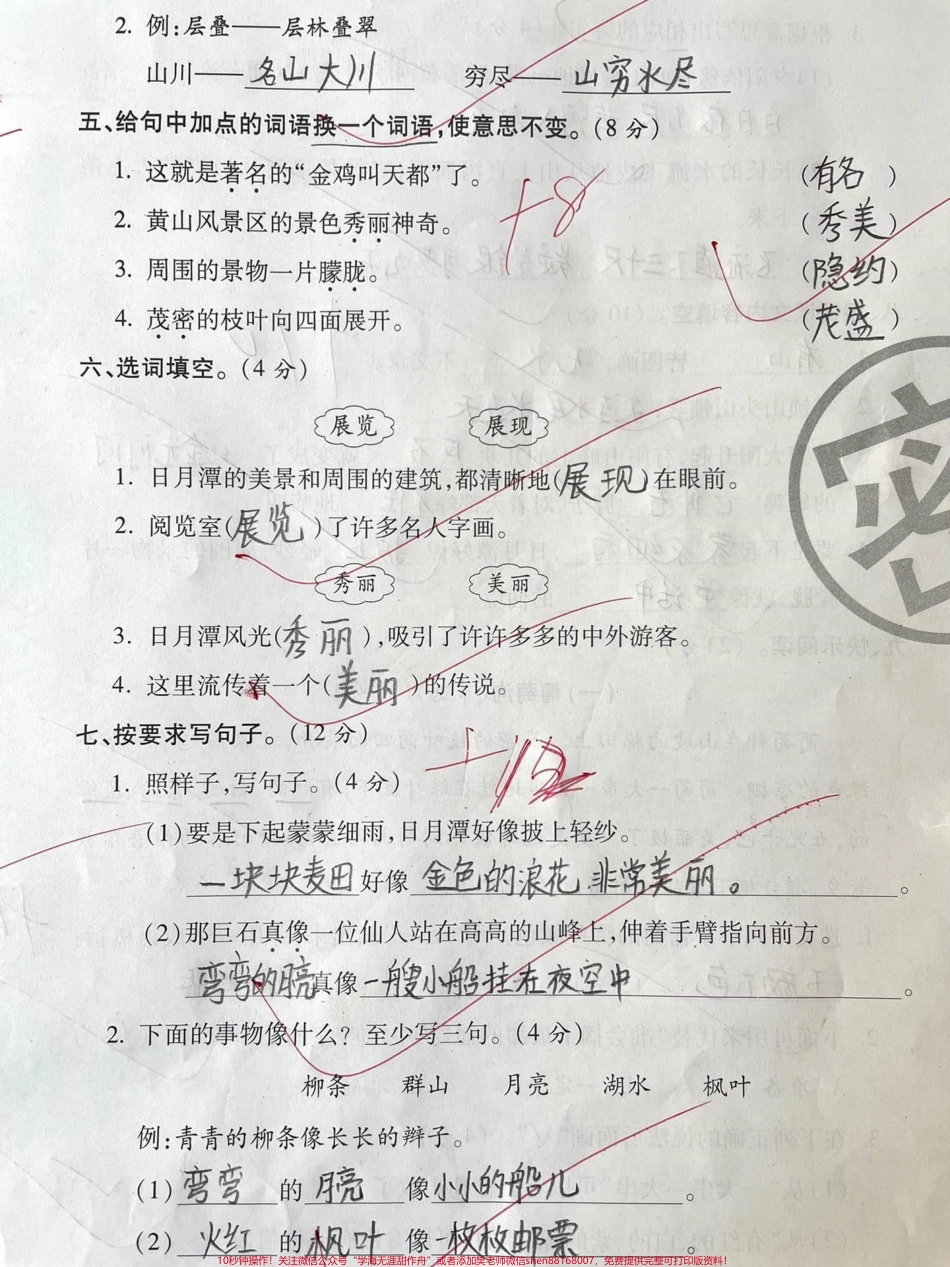 2. 例:层叠——层林叠翠
山川——名山大川 穷尽——山穷水尽
五、给句中加点的词语换一个词语,使意思不变。(8分)
1. 这就是著名的“金鸡叫天都”了。 (有名)
2. 黄山风景区的景色秀丽神奇。 (秀美)
3. 周围的景物一片朦胧。 (隐约)
4. 茂密的枝叶向四面展开。 (茂盛)
+8
六、选词填空。(4分)
展览 展现
1. 日月潭的美景和周围的建筑,都清晰地(展现)在眼前。
2. 阅览室(展览)了许多名人字画。
秀丽 美丽
3. 日月潭风光(秀丽),吸引了许许多多的中外游客。
4. 这里流传着一个(美丽)的传说。
七、按要求写句子。(12分)
1. 照样子,写句子。(4分)
(1)要是下起蒙蒙细雨,日月潭好像披上轻纱。
一块块麦田好像金色的浪花,非常美丽。。
(2)那巨石真像一位仙人站在高高的山峰上,伸着手臂指向前方。
弯弯的月亮真像一艘小船挂在夜空中。
2. 下面的事物像什么?至少写三句。(4分)
柳条 群山 月亮 湖水 枫叶
例:青青的柳条像长长的辫子。
(1)弯弯的月亮像小小的船儿。
(2)火红的枫叶像一枚枚邮票。
密
10秒钟操作!关注微信公众号“学海无涯甜作舟”或者添加樊老师微信shen88168007,免费提供完整可打印版资料!